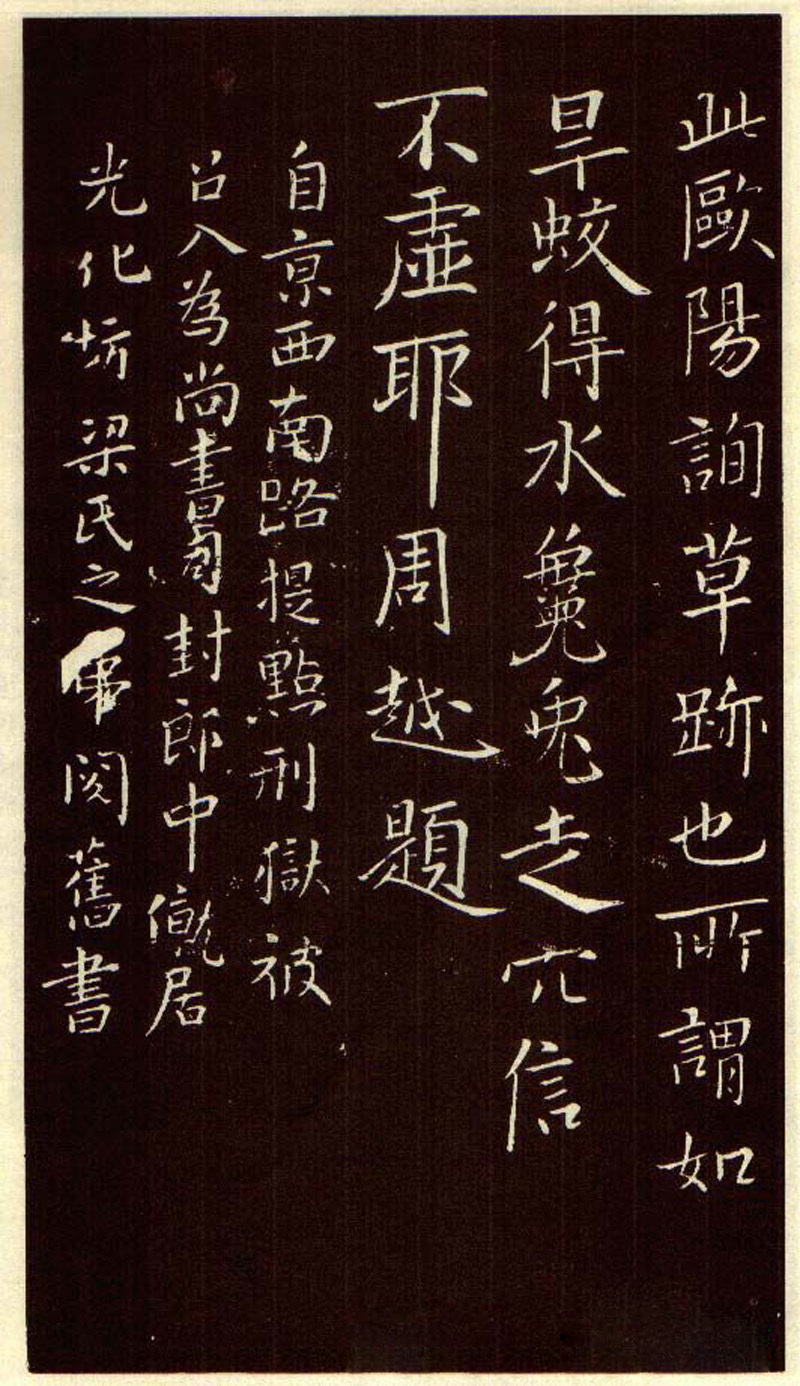 此歐陽詢草跡也所謂如
旱蛟得水毚兔走穴信
不虛耶周越題
自京西南路提點刑獄被
召入為尚書司封郎中僦居
光化坊梁氏之第閱舊書